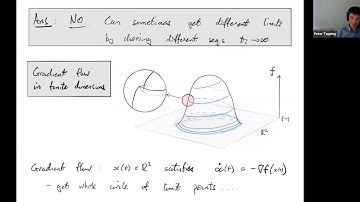 Ans : No. Can sometimes get different limits
by choosing different seqs tᵢ → ∞
Gradient flow
in finite dimensions
f
ℝ²
Gradient flow : x(t) ∈ ℝ² satisfies ẋ(t) = -∇f(x(t))
- get whole circle of limit points ....
Peter Topping